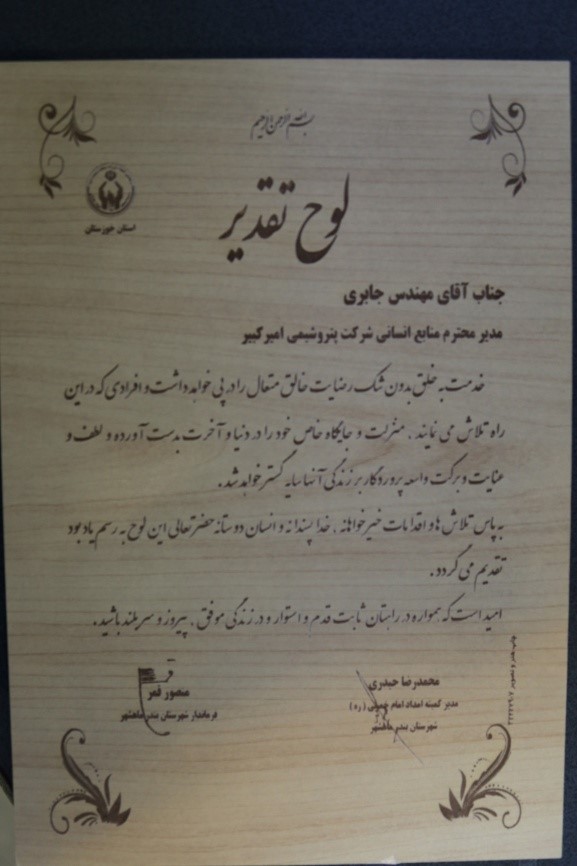 بسم الله الرحمن الرحیم
استان خوزستان
لوح تقدیر
جناب آقای مهندس جابری
مدیر محترم منابع انسانی شرکت پتروشیمی امیر کبیر
خدمت به خلق بدون شک رضایت خالق متعال را در پی خواهد داشت و افرادی که در این
راه تلاش می نمایند ، منزلت و جایگاه خاص خود را در دنیا و آخرت بدست آورده و لطف و
عنایت و برکت واسعه پروردگار بر زندگی آنها سایه گستر خواهد شد .
به پاس تلاش ها و اقدامات خیرخواهانه ، خدا پسندانه و انسان دوستانه حضرتعالی این لوح به رسم یادبود
تقدیم می گردد .
امید است که همواره در راهتان ثابت قدم و استوار و در زندگی موفق ، پیروز و سربلند باشید .
محمدرضا حیدری
مدیر کمیته امداد امام خمینی (ره)
شهرستان بندرماهشهر
منصور قمر
فرماندار شهرستان بندرماهشهر